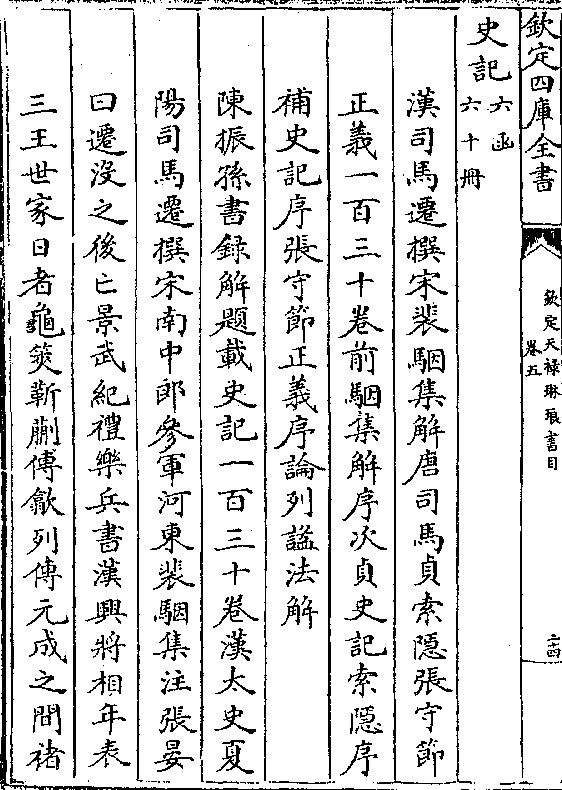 欽定四庫全書
欽定天祿琳琅書目
卷五
二十四
史記六函
六十冊
漢司馬遷撰宋裴駰集解唐司馬貞索隱張守節
正義一百三十卷前駰集解序次貞史記索隱序
補史記序張守節正義序論列諡法解
陳振孫書錄解題載史記一百三十卷漢太史夏
陽司馬遷撰宋南中郎參軍河東裴駰集注張晏
曰遷沒之後亡景武紀禮樂兵書漢興將相年表
三王世家日者龜筴靳蒯傳歙列傳元成之間褚